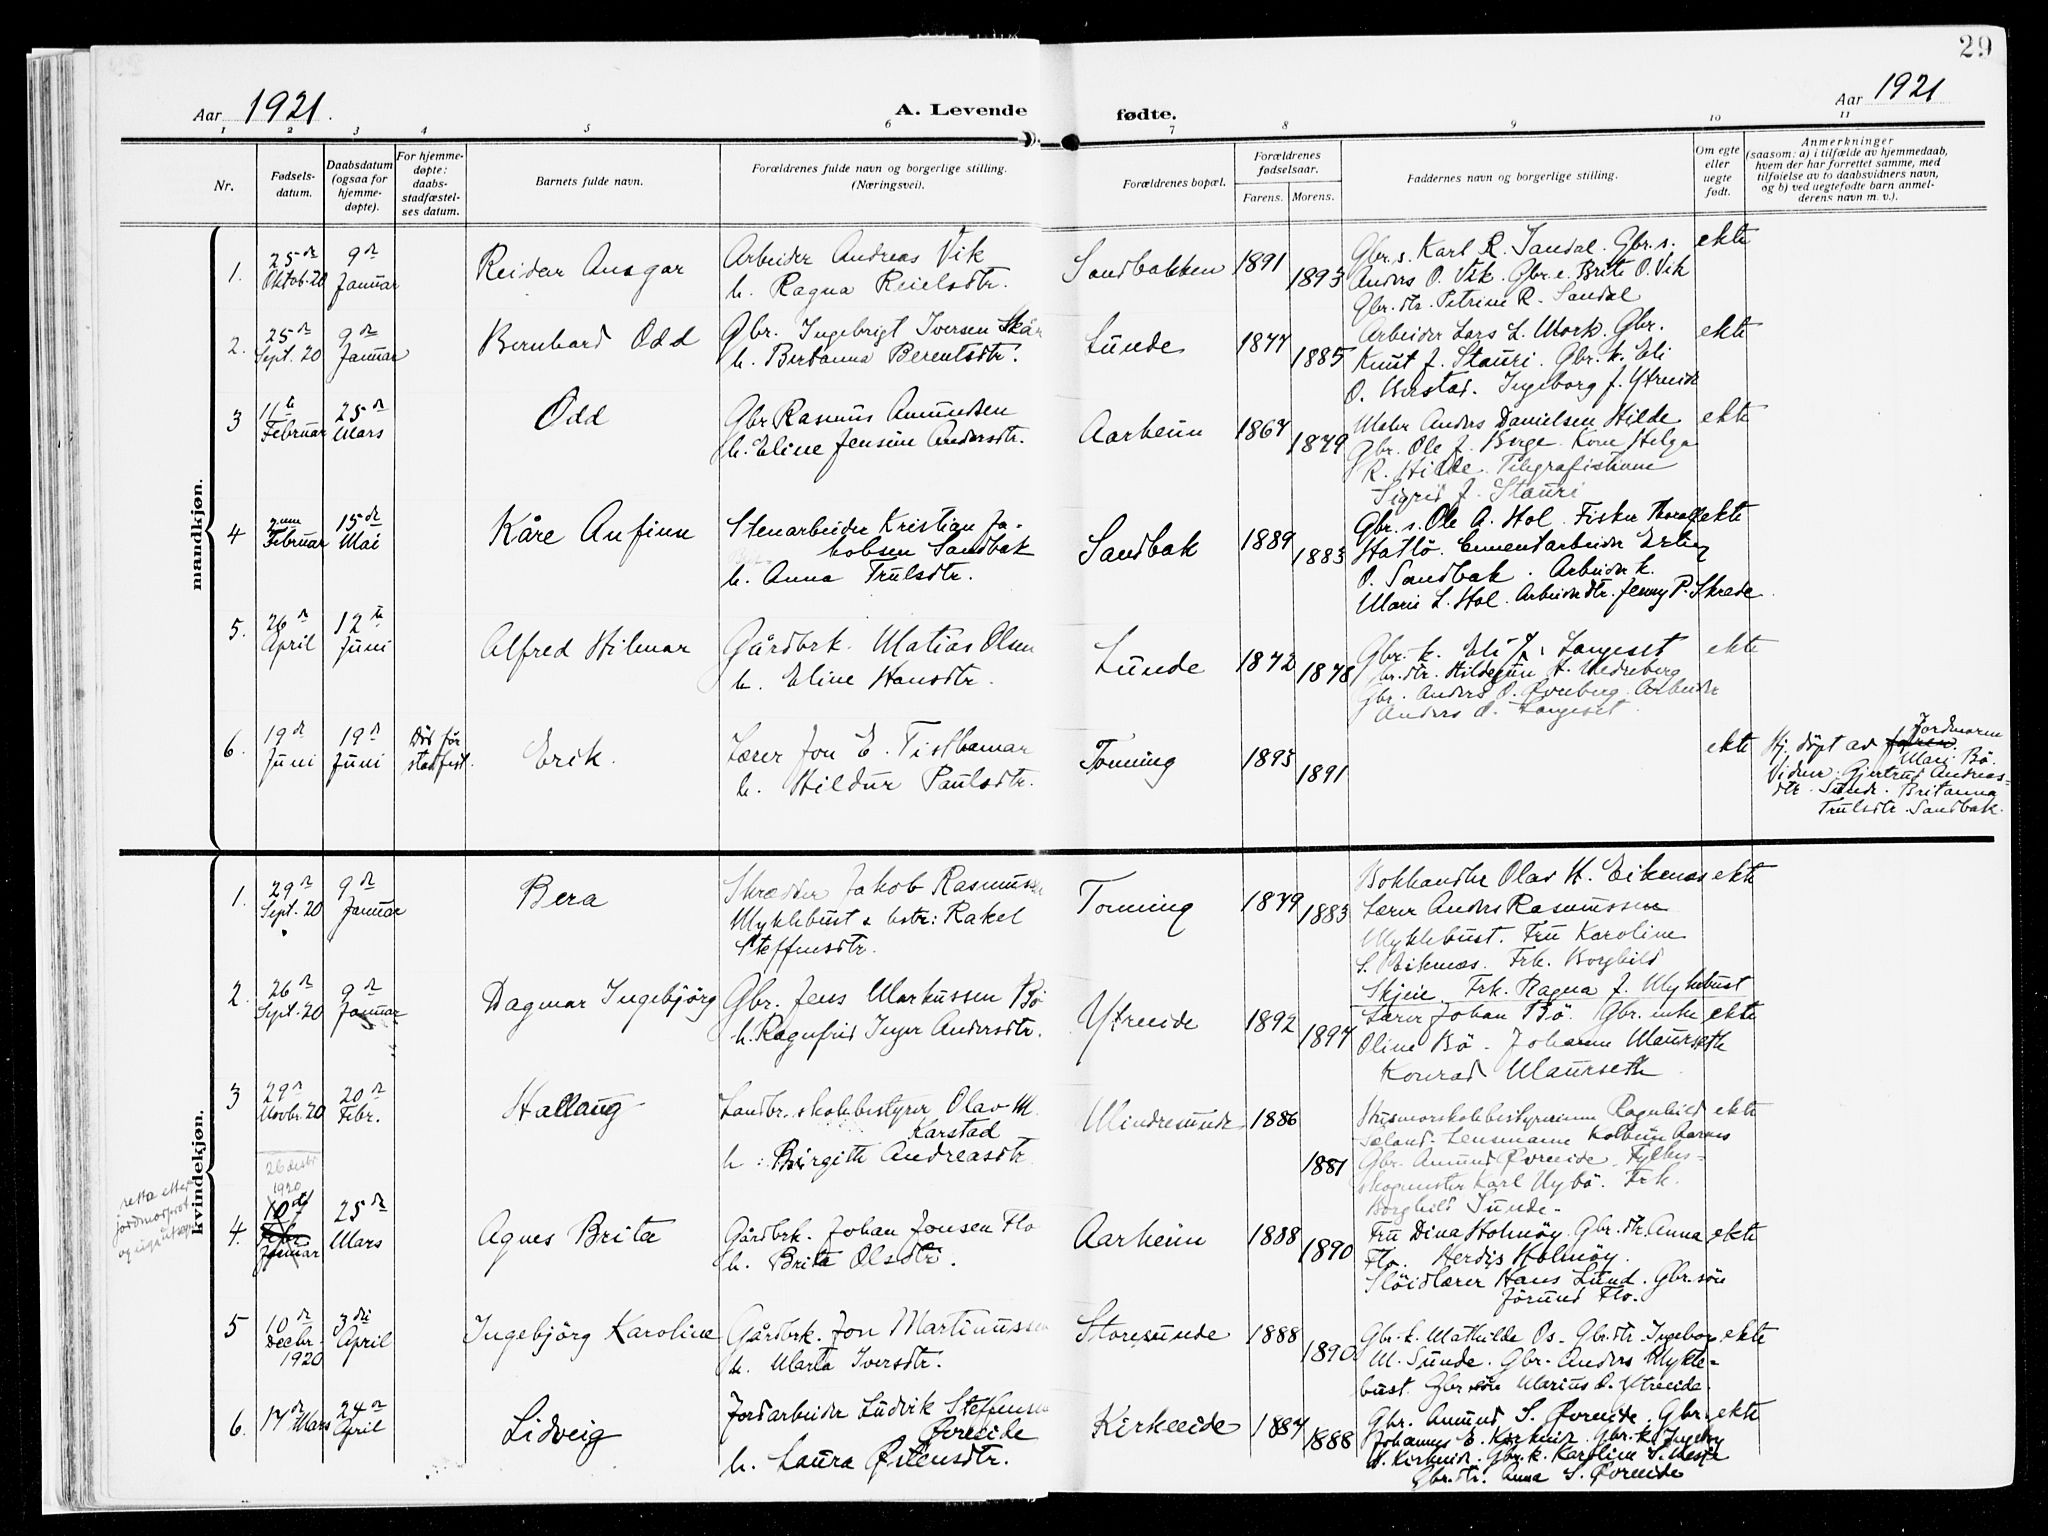 29
Aar 1921.
A. Levende fødte.
Aar 1921
1 2 3 4 5 6 7 8 9 10 11
Nr.
Fødsels-
datum.
Daabsdatum
(ogsaa for
hjemme-
døpte).
For hjemme-
døpte:
daabs-
stadfæstel-
ses datum.
Barnets fulde navn.
Forældrenes fulde navn og borgerlige stilling.
(Næringsvei).
Forældrenes bopæl.
Forældrenes
fødselsaar.
Farens. Morens.
Faddernes navn og borgerlige stilling.
Om egte
eller
uegte
født.
Anmerkninger
(saasom: a) i tilfælde av hjemmedaab,
hvem der har forrettet samme, med
tilføielse av to daabsvidners navn,
og b) ved uegtefødte barn anmel-
derens navn m. v.).
mandkjøn.
1. 25de Oktob. 20 9de Januar
Reidar Ansgar
Arbeider Andreas Vik
h. Ragna Reielsdtr.
Sandbakken 1891 1893
Gbr.s. Karl R. Sandal. Gbr.s.
Anders O. Vik. Gbr.e. Brite O. Vik
Gbr.dtr. Petrine R. Sandal
ekte
2. 25de Sept. 20 9de Januar
Bernhard Odd
Gbr. Ingebrigt Iversen Skår
h. Bertanna Berentsdtr.
Lunde 1877 1885
Arbeider Lars L. Mork. Gbr.
Knut J. Stauri. Gbr.k. Eli
O. Ingeborg J. Ytreeide
ekte
3 11te Februar 25de Mars
Odd
Gbr. Rasmus Amundsen
h. Eline Jensine Andersdtr.
Aarheim 1867 1879
Maler Anders Danielsen Hilde
Gbr. Ole J. Berge. Kone Helga
R. Hilde. Telegrafistinne
Sigrid J. Stauri
ekte
4 Februar 15de Mai
Kåre Anfinn
Stenarbeider Kristian Ja-
kobsen Sandbak
h. Anna Trulsdtr.
Sandbak 1889 1883
Gbr.s. Ole A. Hol. Fisker Thoralf
Hatlö. Cementarbeider Erling
O. Sandbak. Arbeider k.
Marie L. Hol. Arbeiderdtr. Jenny P. Skrede.
ekte
5. 26de April 12te Juni
Alfred Hilmar
Gårdbrk. Matias Olsen
h. Eline Hansdtr.
Lunde 1872 1878
Gbr.k. Eli J. Langeset
Gbr.dtr. Hildegun H. Nedreberg
Gbr. Anders O. Övreberg. Arbeider
Anders A. Langeset.
ekte
6. 19de Juni 19de Juni
Död för
stadfest.
Erik.
Lærer Jon E. Tisthamar
h. Hildur Paulsdtr.
Tonning 1893 1891
ekte
Hj. döpt av faren. Jordmoren
Mari Bö.
Vidner: Gjertrud Andreas-
dtr. Sunde. Britanna
Trulsdtr. Sandbak.
kvindekjøn.
1. 29de Sept. 20 9de Januar
Bera
Skrædder Jakob Rasmussen
Myklebust & hstr: Rakel
Steffensdtr.
Tonning 1879 1883
Bokhandler Olav H. Eikenæs
Lærer Anders Rasmussen
Myklebust. Fru Karoline
S. Eikenæs. Frk. Borghild
Skjeie. Frk. Ragna J. Myklebust
ekte
2. 26de Sept. 20 9de Januar
Dagmar Ingebjörg
Gbr. Jens Markussen Bö
h. Ragnfrid Inger Andersdtr.
Ytreeide 1892 1897
Lærer Johan Bö. Gbr. enke
Oline Bö. Johanne Maurseth
Konrad Maurseth
ekte
3 29de Novbr. 20 20de Febr.
Hallaug
Landbr. skolebestyrer Olav M.
Karstad
h: Birgith Andreasdtr.
Mindresunde 1886 1881
Husmorskolebestyrerinne Ragnhild
Sæland. Lensmann Kolbein Aarnes
Gbr. Amund Övreeide. Fylkes-
skogmester Karl Nybö. Frk.
Borghild Sunde.
ekte
retta etter
jordmorprot.
26 desbr
1920
4. 10de Febr Januar 25de Mars
Agnes Brita
Gårdbrk. Johan Jonsen Flo
h. Brita Olsdtr.
Aarheim 1888 1890
Fru Dina Holmöy. Gbr.dtr. Anna
Flo. Herdis Holmöy.
Slöidlærer Hans Lund. Gbr. sön
Jörund Flo.
ekte
5 10de Decbr. 1920 3die April
Ingebjörg Karoline
Gårdbrk. Jon Martinussen
h. Marta Iversdtr.
Storesunde 1888 1890
Gbr.k. Mathilde Os. Gbr.dtr. Ingeborg
M. Sunde. Gbr. Anders Mykle-
bust. Gbr sön Marius A. Ytreeide.
ekte
6. 17de Mars 24de April
Lidveig
Jordarbeider Ludvik Steffensen
Övreeide
h. Laura Östensdtr.
Kirkeeide 1887 1888
Gbr. Amund S. Övreeide. Gbr.
Johannes E. Kirkeide. Gbr.k. Ingeborg
A. Kirkeide. Gbr.k. Karoline S.
Gbr.dtr. Anna S. Övreeide
ekte